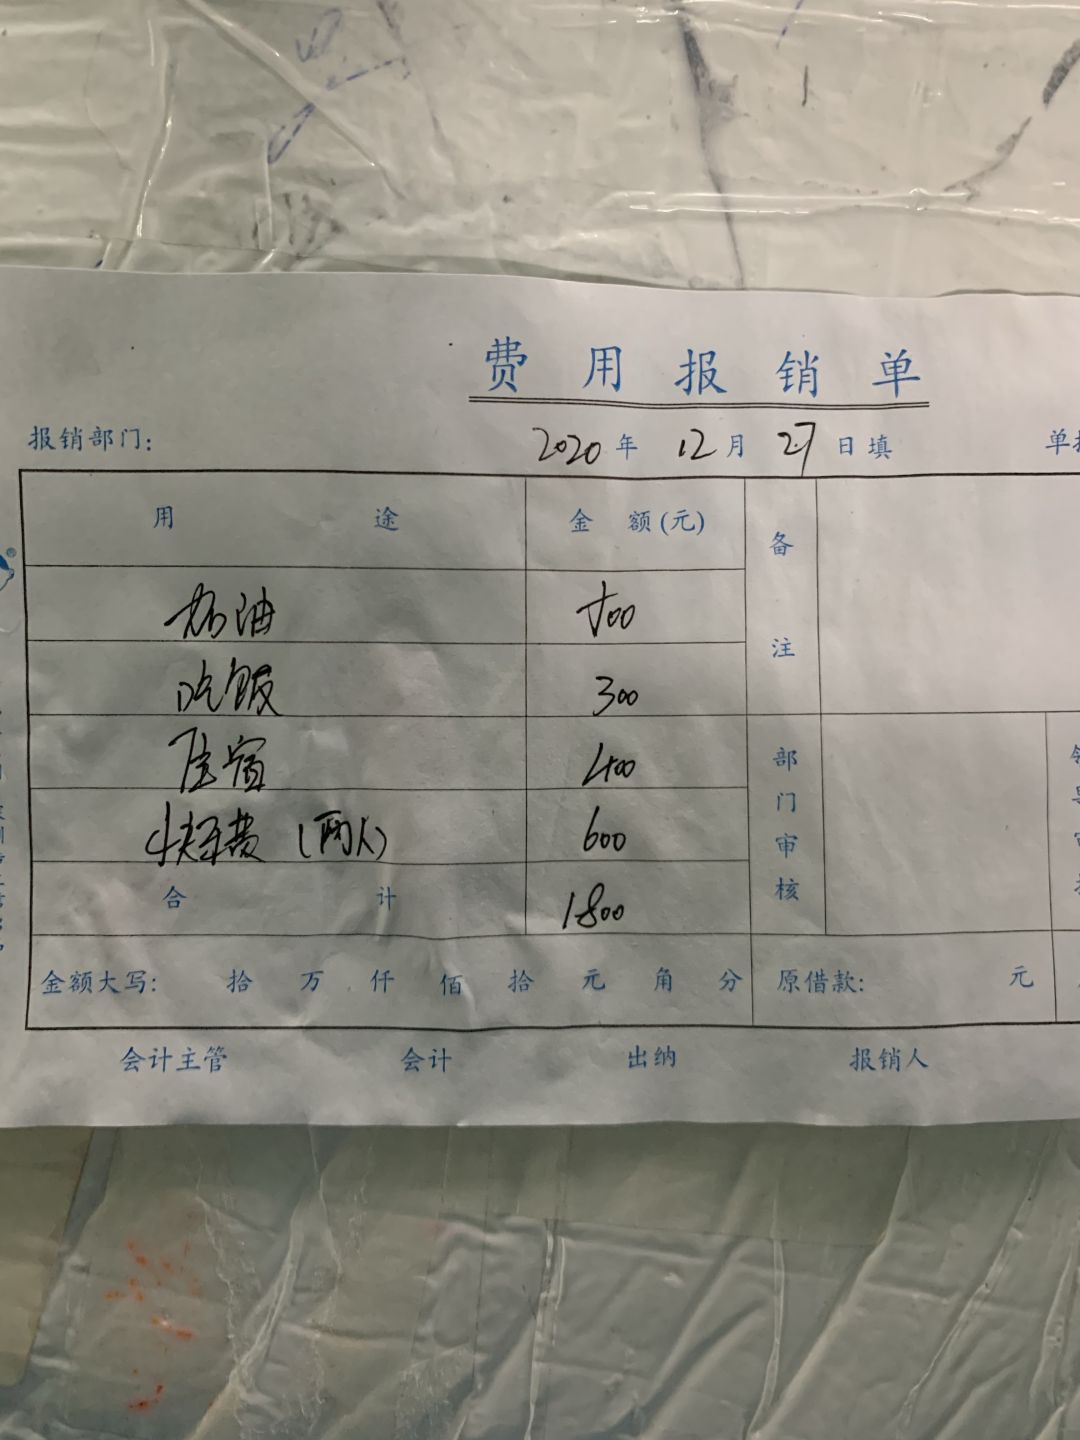 费用报销单
报销部门: 2020年 12月 27日填 单据
用途 金额(元) 备注
加油 500
吃饭 300
住宿 400
快递费(两人) 600
合计 1800
部门审核
金额大写: 拾 万 仟 佰 拾 元 角 分 原借款: 元
会计主管 会计 出纳 报销人